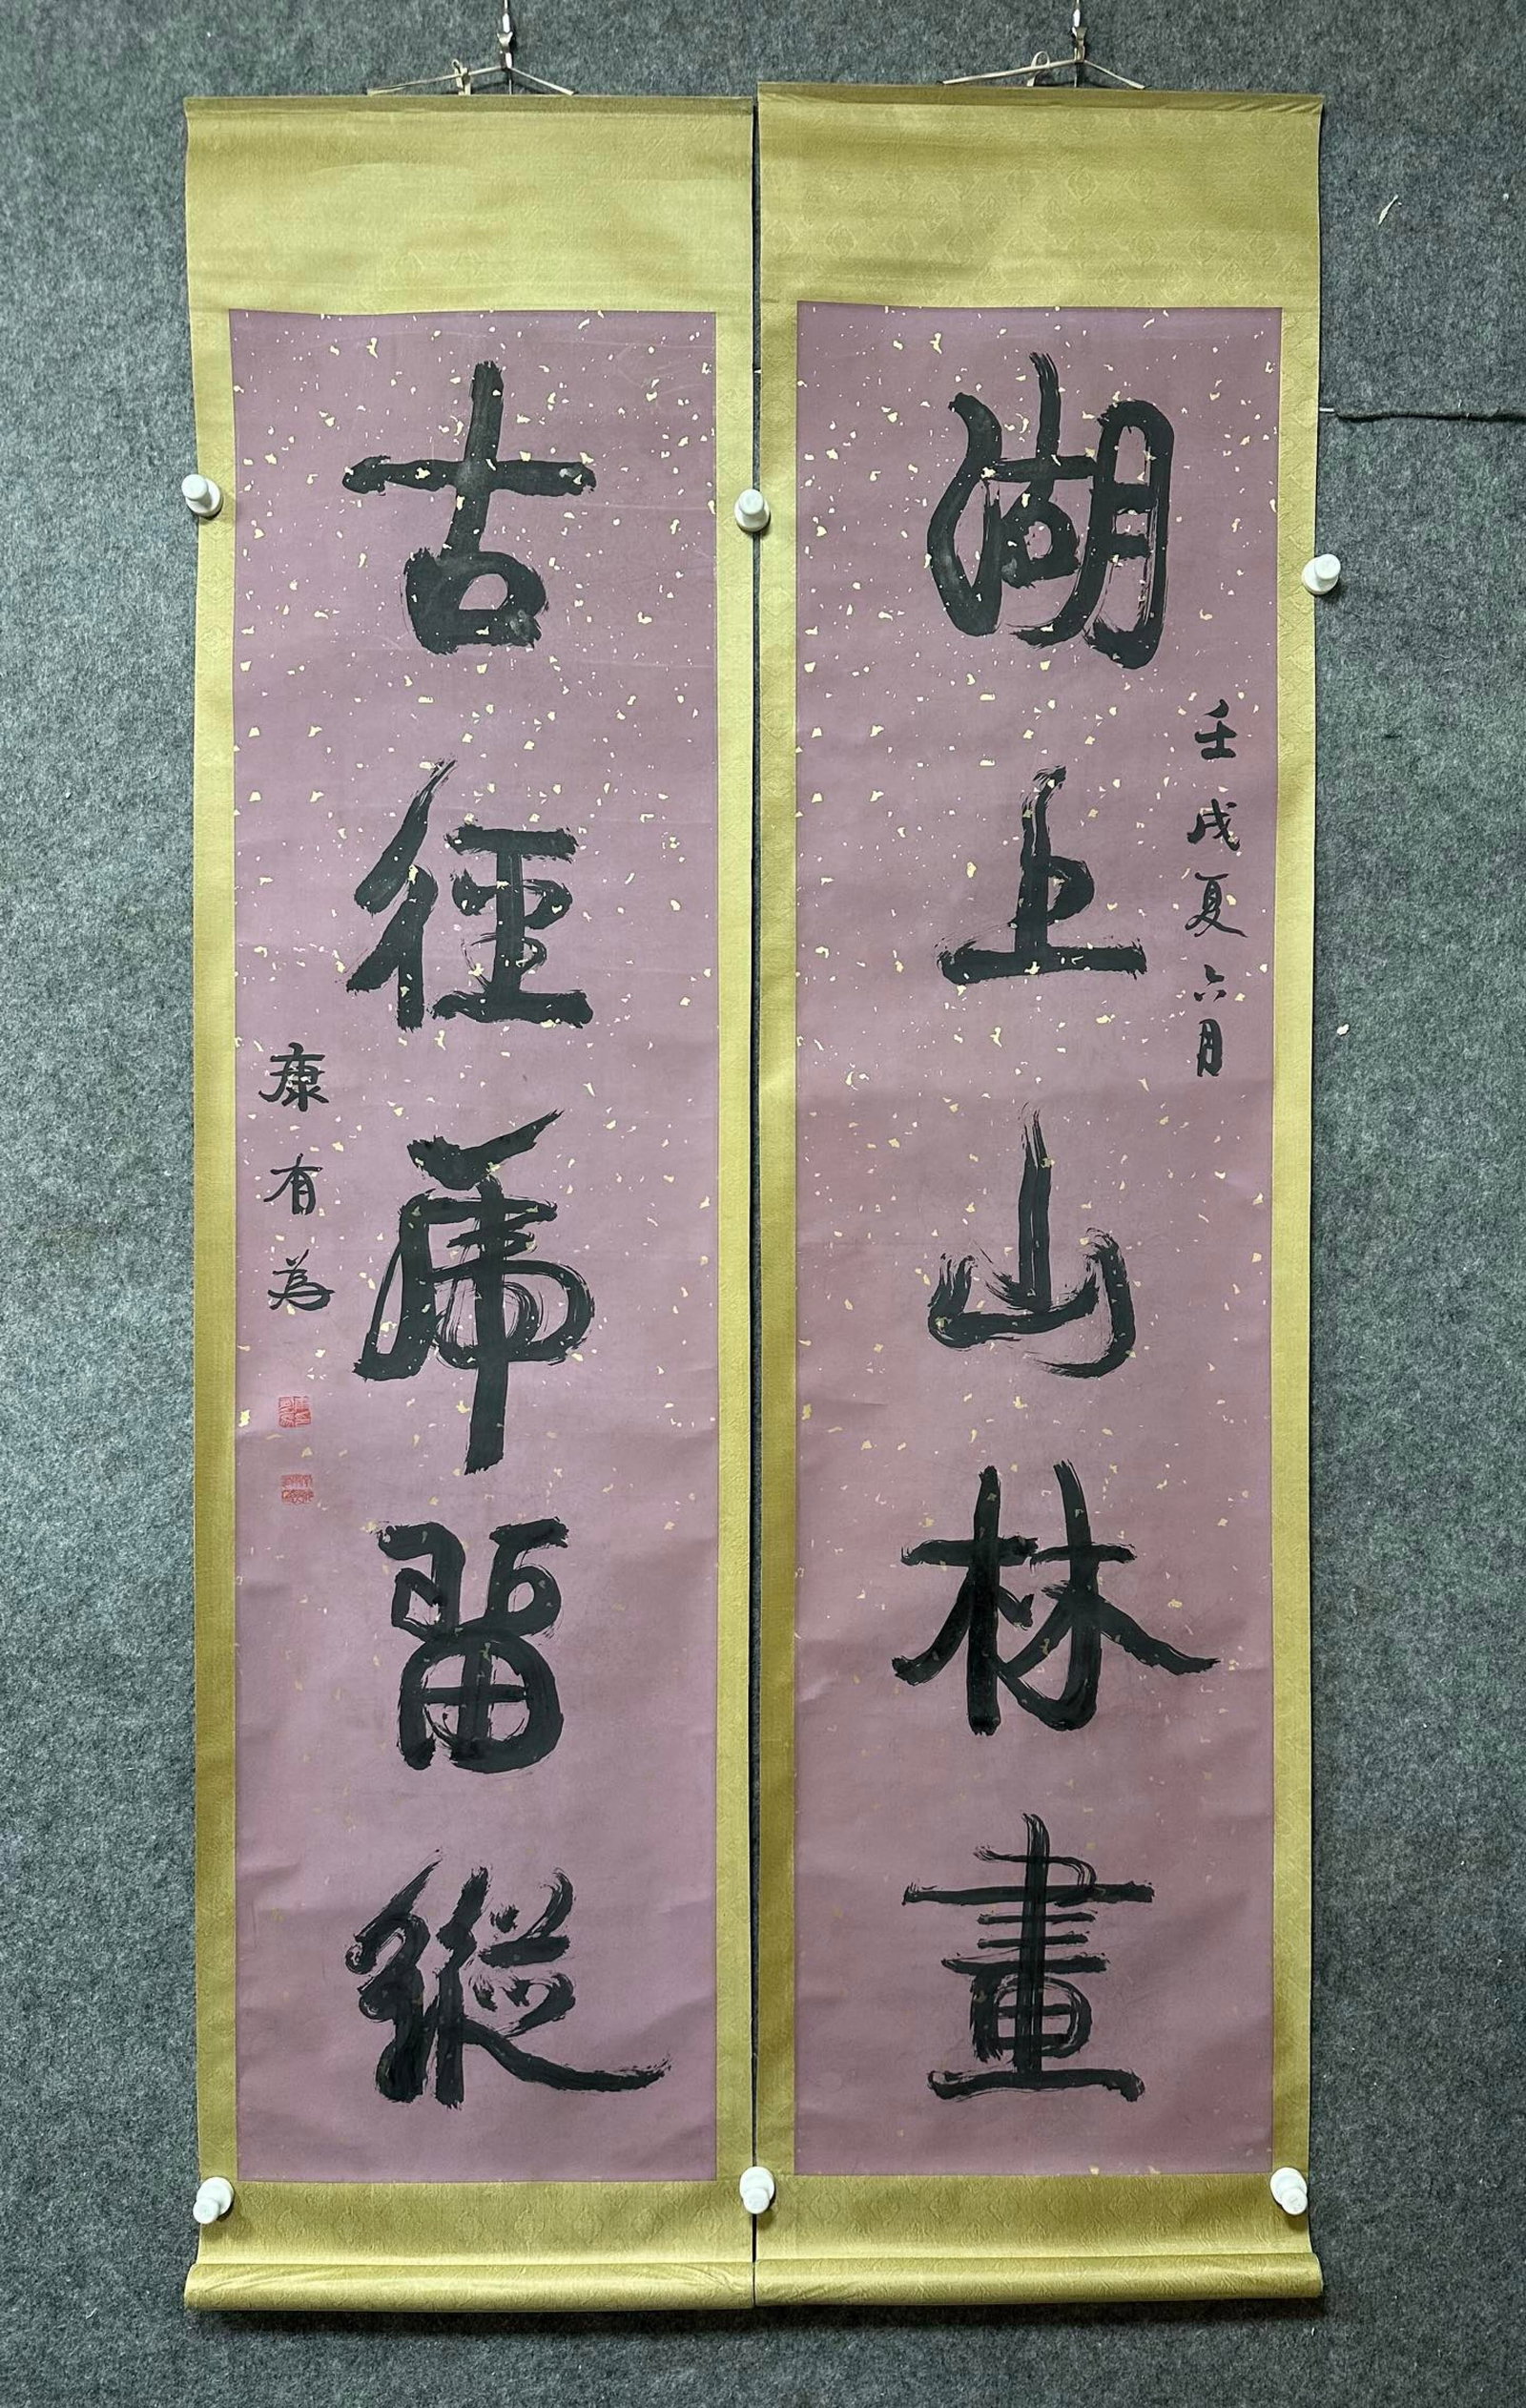 湖上山林畫
壬戌夏六月
古徑虎留縱
康有為